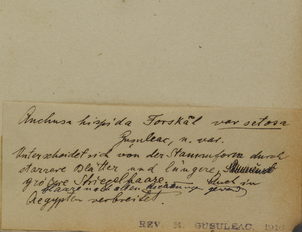 Anchusa hispida Forskål var setosa
Guşuleac, n. var.
Unterscheidet sich von der Stammform durch
starrere Blätter und längere,
größere Striegelhaare. Auch in
Aegypten verbreitet.
REV. M. GUŞULEAC, 19